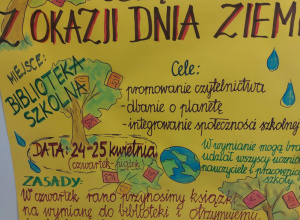 Z OKAZJI DNIA ZIEMI
MIEJSCE:
BIBLIOTEKA
SZKOLNA
Cele:
- promowanie czytelnictwa
- dbanie o planetę
- integrowanie społeczności szkolnej
DATA: 24-25 kwietnia
(czwartek-piątek)
W wymianie mogą brać
udział wszyscy uczniowie
nauczyciele i pracownicy
szkoły
ZASADY:
W czwartek rano przynosimy książki
na wymianę do biblioteki i otrzymujemy